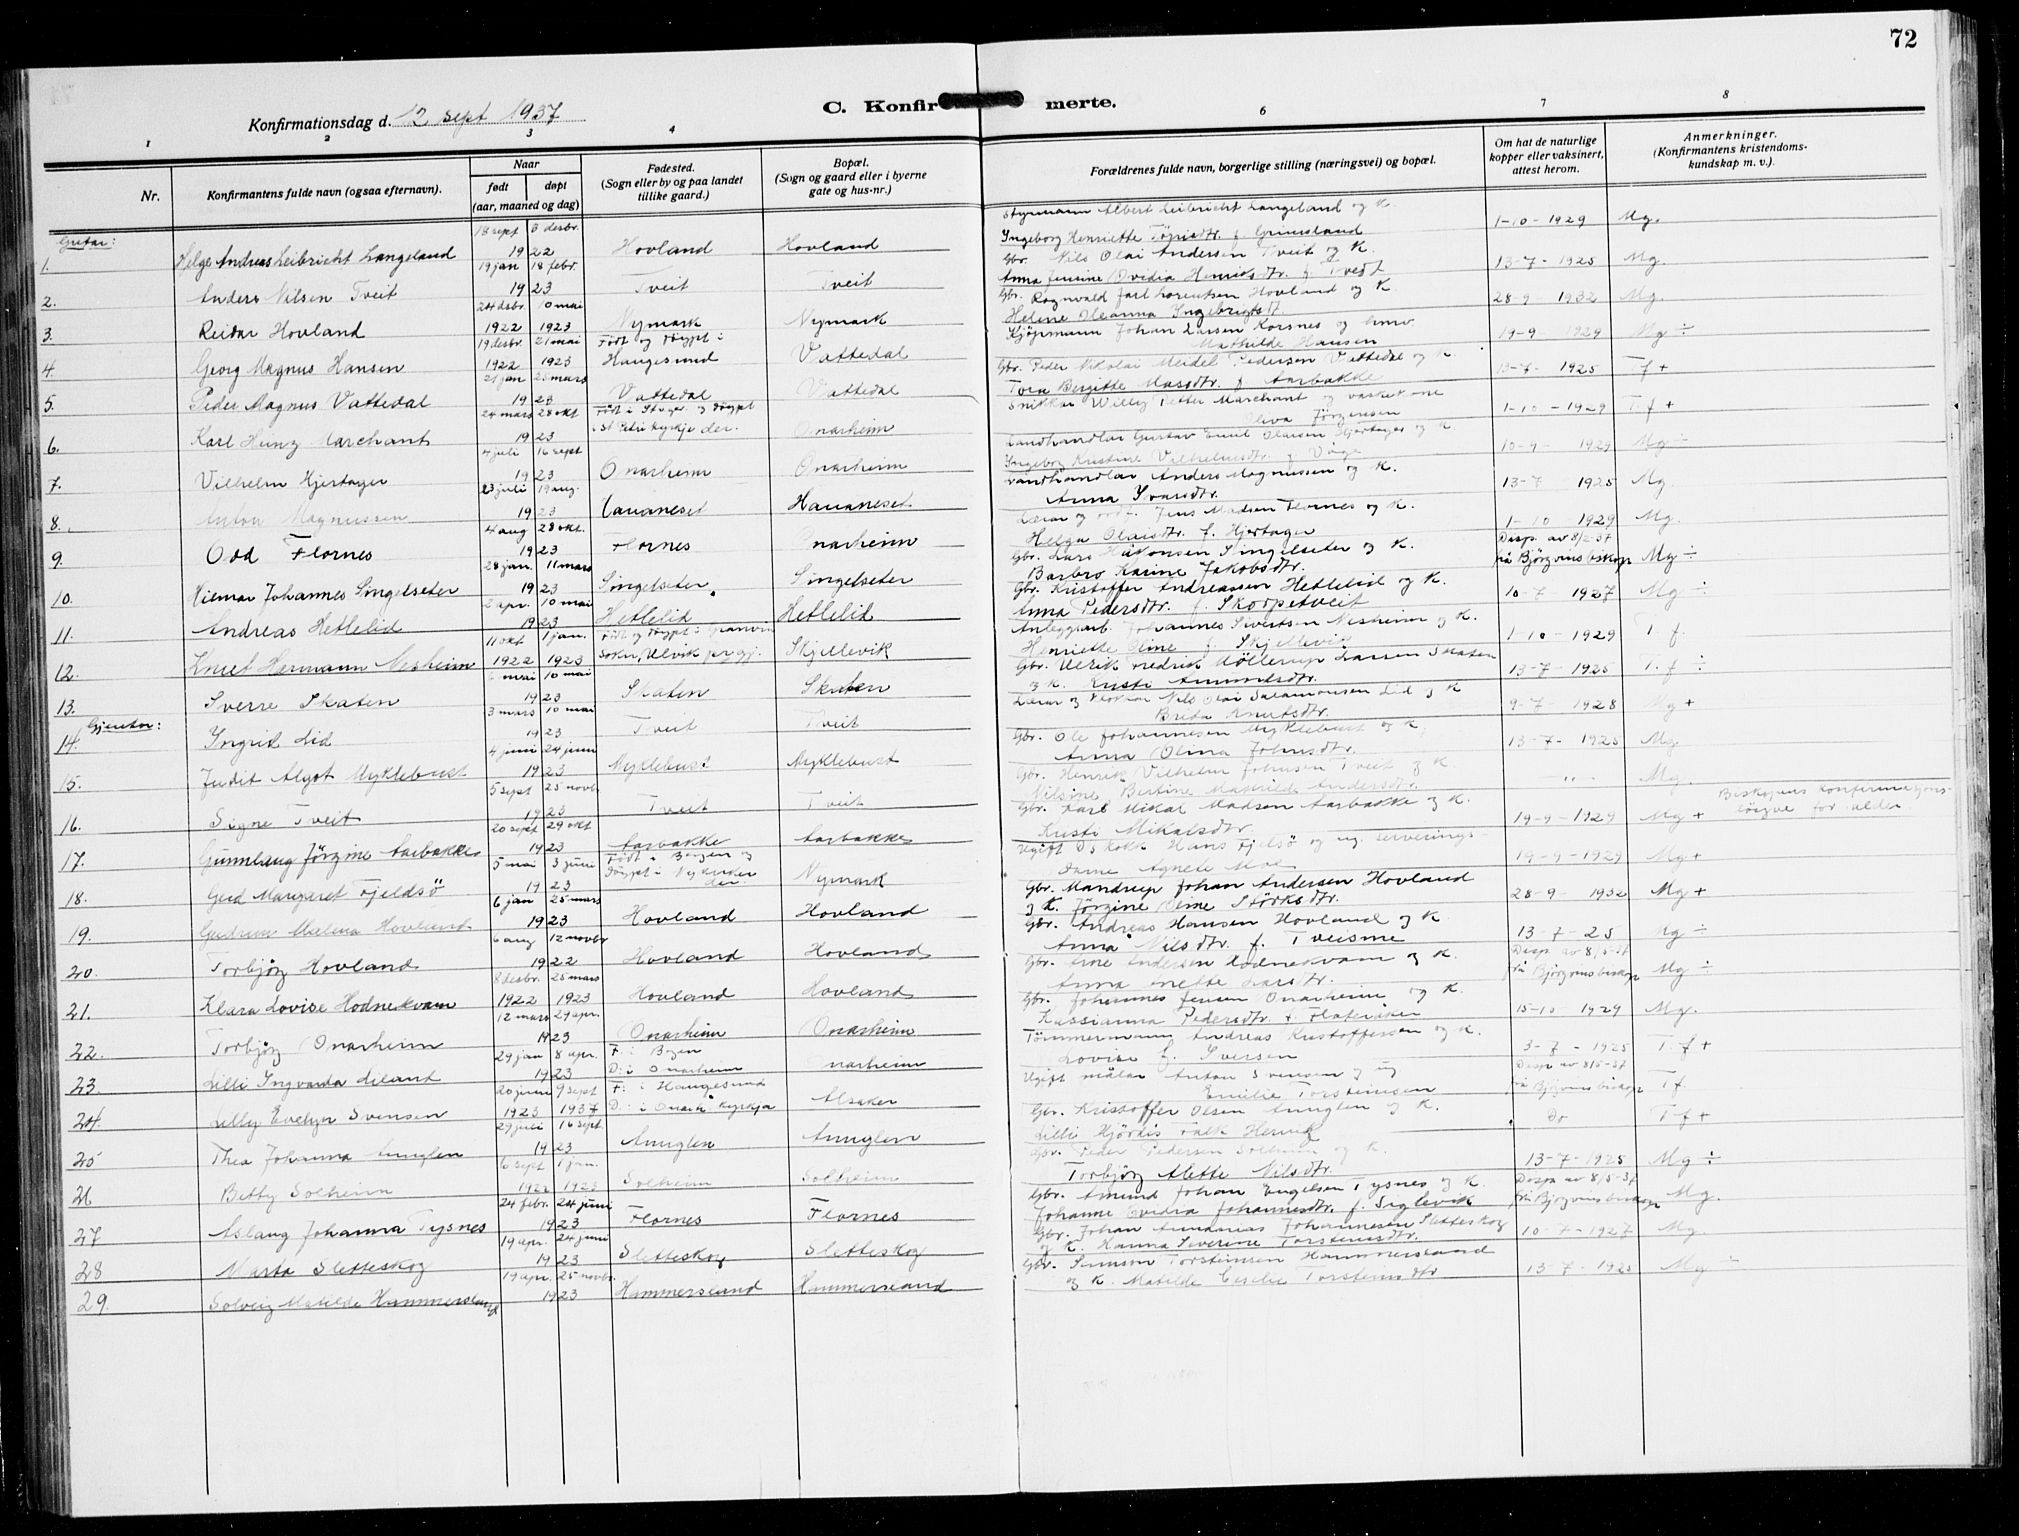 72
C. Konfirmerte.
Konfirmationsdag d. 12 sept 1937
1 2 3 4 6 7 8
Nr.
Konfirmantens fulde navn (ogsaa efternavn).
Naar
født døpt
(aar, maaned og dag)
Fødested.
(Sogn eller by og paa landet
tillike gaard.)
Bopæl.
(Sogn og gaard eller i byerne
gate og hus-nr.)
Forældrenes fulde navn, borgerlige stilling (næringsvei) og bopæl.
Om hat de naturlige
kopper eller vaksinert,
attest herom.
Anmerkninger.
(Konfirmantens kristendoms-
kundskap m. v.).
Gutar:
1. Helge Andreas Leibricht Langeland 18 sept 3 desbr. 1922 Hovland Hovland Styrmann Albert Leibricht Langeland og K. Ingeborg Henriette Tørrisdtr. f. Grimsland 1-10-1929 Mg.
2. Anders Nilsen Tveit 19 jan 18 febr. 1923 Tveit Tveit Gbr. Nils Olai Andersen Tveit og K. Anna Jensine Ovidia Henriksdtr. f. Tveit 13-7-1925 Mg.
3. Reidar Hovland 24 desbr. 10 mai 1922 1923 Nymark Nymark Gbr. Ragnvald Jarl Lorentsen Hovland og K Helene Oleanna Ingebrigtsdt 28-9-1932 Mg.
4. Georg Magnus Hansen 19 desbr. 21 mai 1922 1923 Født og døypt i Haugesund Vattedal Kjøpmann Johan Larsen Korsnes og Mathilde Hansen 19-9-1929 Mg ÷
5. Peder Magnus Vattedal 21 jan 25 mars 1923 Vattedal Vattedal Gbr. Peder Nikolai Meidel Pedersen Vattedal og K. Tora Bergitte Masdtr. f. Aarbakke 13-7-1925 Tf +
6. Karl Heinz Marchant 24 mars 28 okt 1923 Født i og døypt i St Petri kyrkje der. Onarheim Snikkar Willy Petter Marchant og vaskekone Oliva Jørgensen 1-10-1929 T.f +
7. Vilhelm Hjertager 4 juli 16 sept 1923 Onarheim Onarheim Landhandlar Gustav Emil Olaisen Hjertager og K. Ingeborg Kristine Vilhelmsdtr. f. Våge 10-9-1929 Mg ÷
8. Anton Magnussen 23 juli 19 aug. 1923 Havaneset Havaneset Landhandlar Anders Magnussen og K. Anna Ivarsdtr. 13-7 1925 Mg.
9. Odd Flornes 4 aug 28 okt. 1923 Flornes Onarheim Lærar og ordf. Jens Madsen Flornes og K. Helga Olaisdtr. f. Hjertager 1-10 1929 Mg.
10. Hilmar Johannes Singelseter 28 jan. 11 mars 1923 Singelseter Singelseter Gbr. Lars Håkonsen Singelseter og K. Barbro Karine Jakobsdtr. Disp. av 8/2-37 frå Bjørgvins biskop Mg ÷
11. Andreas Hetlelid 2 apr. 10 mai 1923 Hetlelid Hetlelid Gbr. Kristoffer Andreassen Hetlelid og K. Anna Pedersdtr. f. Skorpetveit 10-7-1927 Mg ÷
12. Knut Hermann Nesheim 11 okt 1 jan. 1922 1923 Født og døypt i Granvin sokn, Ulvik prgj. Skjellevik Anleggsarb. Johannes Sivertsen Nesheim og K. Henriette Oline f. Skjellevik 1-10-1929 T. f.
13. Sverre Skaten mai 10 mai 1923 Skaten Skaten Gbr. Ulrik Fredrik Møllerup Larsen Skaten og K. Kristi Amundsdtr. 13-7-1925 T. f ÷
Gjentor:
14. Ingrid Lid 3 mars 10 mai 1923 Tveit Tveit Lærar og klokkar Nils Olai Salamonsen Lid og K Brita Knutsdtr. 9-7-1928 Mg +
15. Judit Algot Myklebust 4 juni 24 juni 1923 Myklebust Myklebust Gbr. Ole Johannesen Myklebust og K. Anna Olina Johnsdtr. 13-7-1925 Mg.
16. Signe Tveit 5 sept 25 novbr. 1923 Tveit Tveit Gbr. Henrik Vilhelm Johnsen Tveit og K. Nilsine Bertine Mathilde Andersdtr. -"- Mg.
17. Gunnlaug Jørgine Aarbakke 20 sept 29 okt 1923 Aarbakke Aarbakke Gbr. Karl Mikal Madsen Aarbakke og K. Kristi Mikalsdtr. 19-9-1929 Mg + Biskopens konfirmasjons- løyve for alder
18. Gerd Margaret Fjeldsö 5 mai 3 juni 1923 Født i Bergen og døypt i der. Nymark Ugift kokk Hans Fjelsö og ug. serverings- dame Agnete Moe 19-9-1929 Mg +
19. Gudrun Malena Hovland 6 jan 25 mars 1923 Hovland Hovland Gbr. Mandrup Johan Andersen Hovland og K. Jørgine Oline Størksdtr. 28-9-1932 Mg +
20. Torbjørg Hovland 6 aug 12 novbr 1922 Hovland Hovland Gbr. Andreas Hansen Hovland og K Anna Nilsdtr. f. Tveisme 13-7-25 Mg ÷
21. Klara Lovise Hodnekvam 8 desbr. 25 mars 1922 1923 Hovland Hovland Gbr. Arne Andersen Hodnekvam og K. Anna Mette Larsdtr. Disp. av 8/5-37 frå Bjørgvins biskop Mg ÷
22. Torbjørg Onarheim 12 mars 29 apr. 1923 Onarheim Onarheim Gbr. Johannes Jensen Onarheim og K. Kassianna Pedersdtr. f. Flateråker 15-10 1929 Mg.
23. Lilli Ingvarda Liland 29 jan 8 apr. 1923 F: i Bergen D: i Onarheim Onarheim Tømmermann Andreas Kristoffersen og K. Lovise f. Iversen 3-7-1925 T. f +
24. Lilly Evelyn Svensen 20 juni 9 sept 1923 1937 F: i Haugesund D: i Onarh. kyrkja Alsaker Ugift målar Anton Svensen og ug Emilie Torsteinsen Disp av 8/5-37 frå Bjørgvins biskop T f.
25 Thea Johanna Anuglen 29 juli 16 sept. 1923 Anuglen Anuglen Gbr. Kristoffer Olsen Anuglen og K. Lilli Hjördis Falk Do T f +
26 Betty Solheim 6 sept 1 jan. 1922 1923 Solheim Solheim Gbr. Peder Pedersen Solheim og K. Torbjørg Alette Nilsdtr. 13-7-1925 Mg ÷
27 Aslaug Johanna Tysnes 24 febr. 24 juni 1923 Flornes Flornes Gbr. Amund Johan Engelsen Tysnes og K. Johanne Ovidia Johannesdtr. f. Siglevik Disp av 8/5-37 frå Bjørgvins biskop Mg.
28 Marta Sletteskog 19 apr. 24 juni 1923 Sletteskog Sletteskog Gbr. Johan Johannesen Sletteskog og K. Hanna Severine Torsteinsdtr. 10-7-1927 Mg.
29. Solveig Matilde Hammersland 19 apr. 25 novbr. 1923 Hammersland Hammersland Gbr. Simson Torsteinsen Hammersland og K. Matilde Cecilie Torsteinsdtr 13-7-1925 Mg ÷